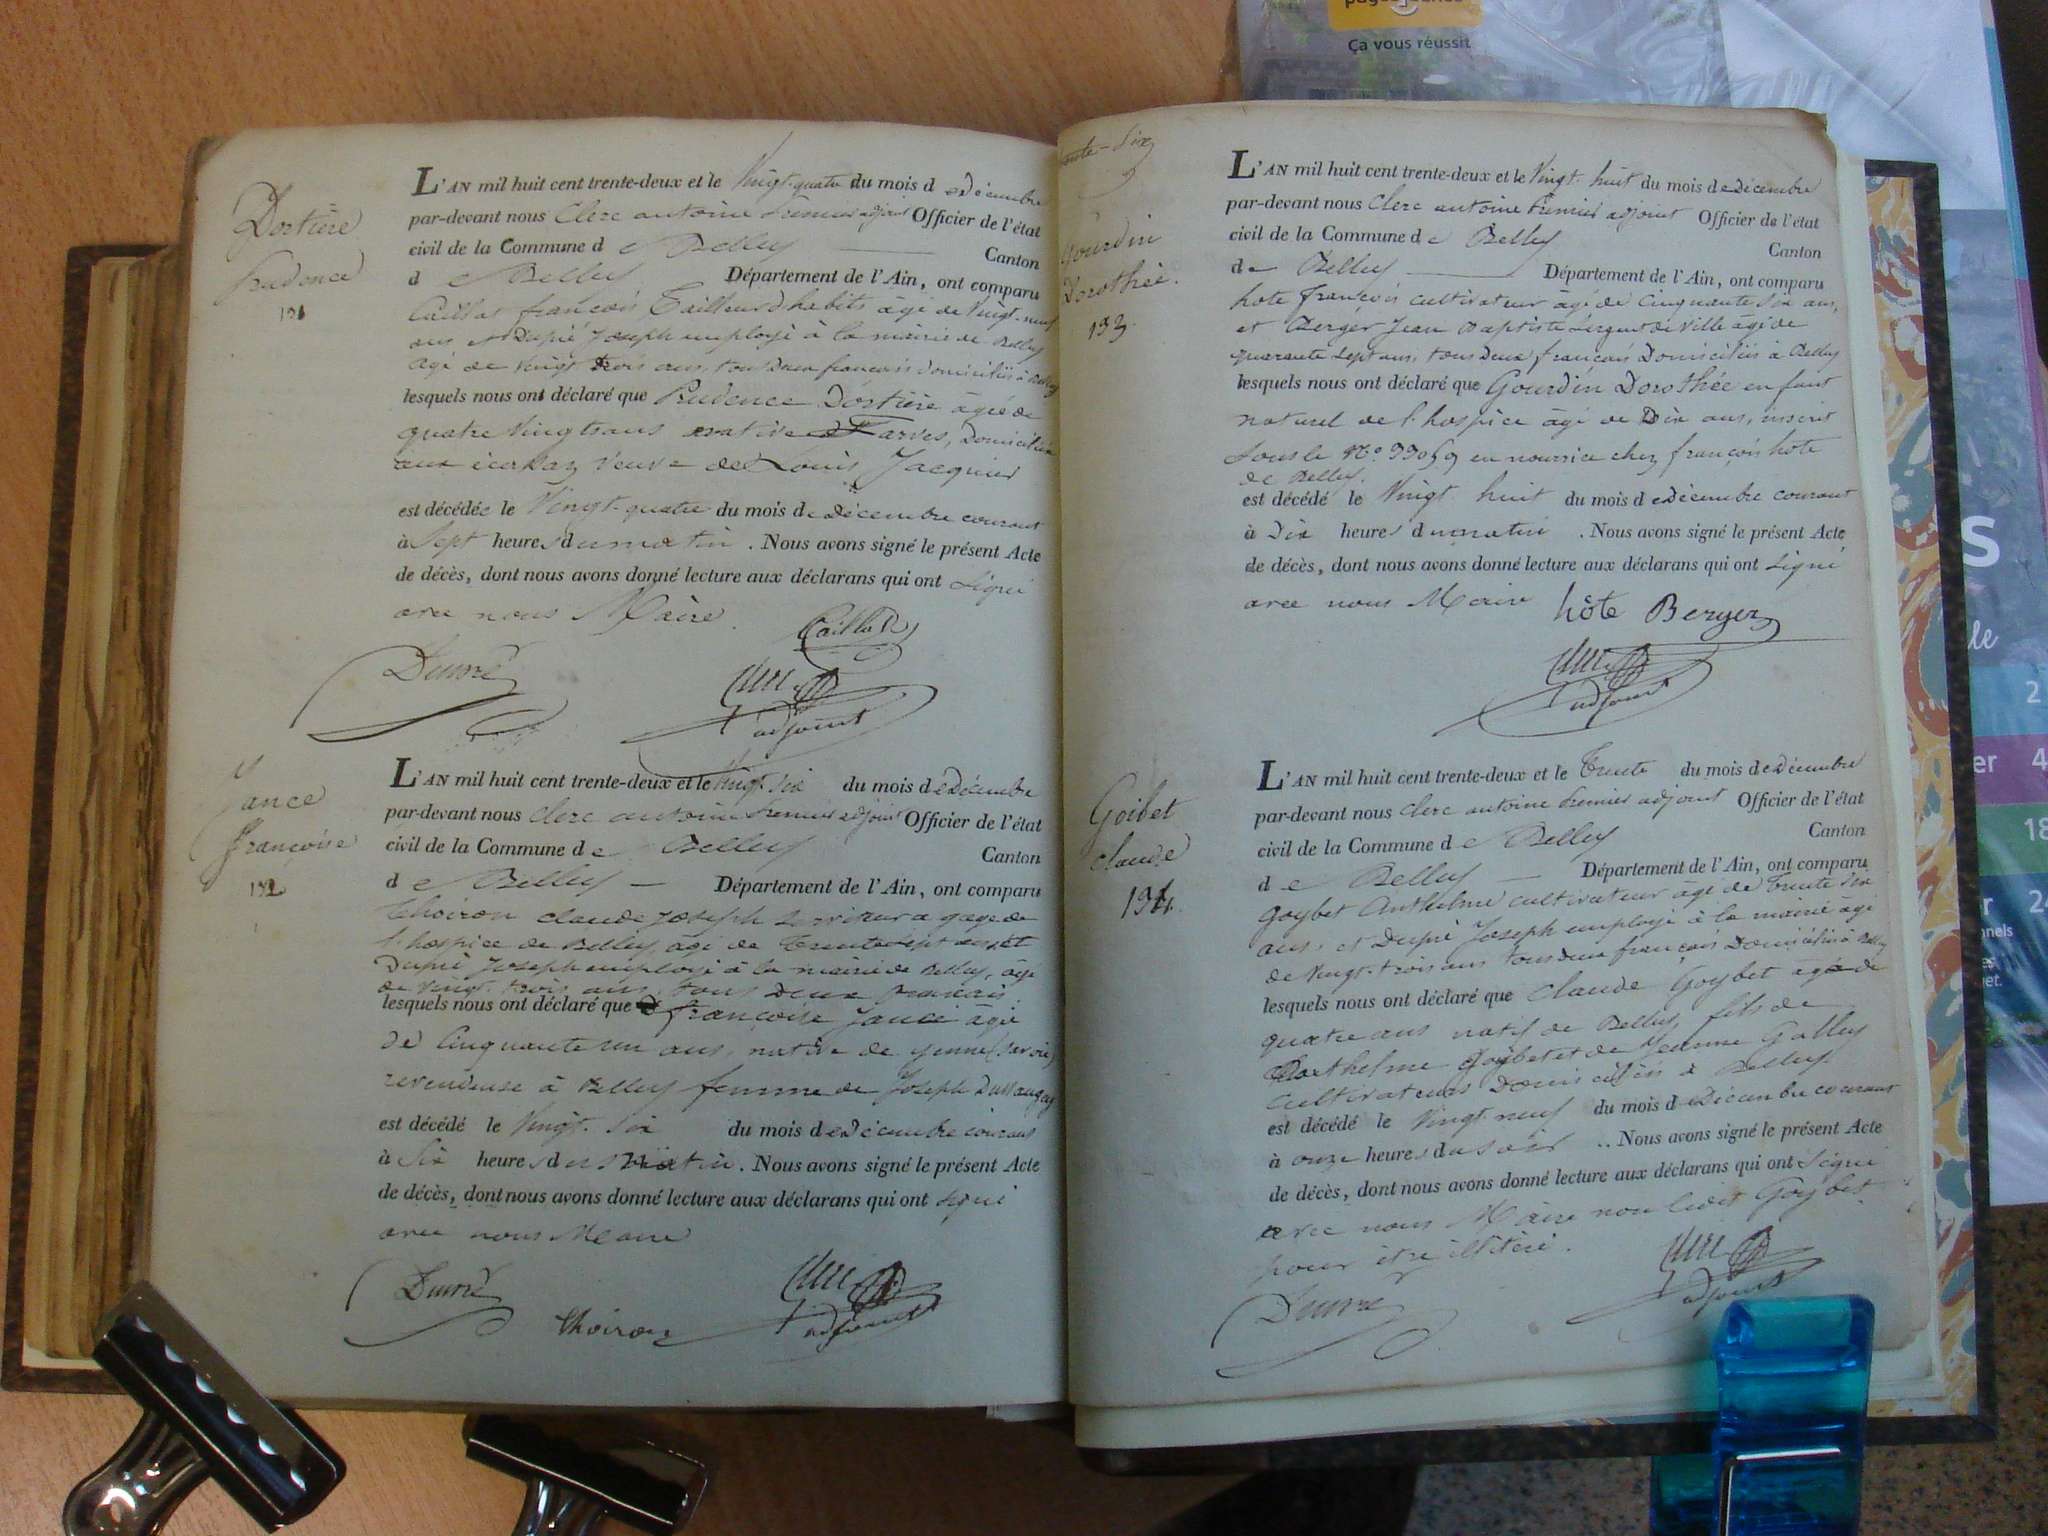 Dortière
Prudence
191
L'AN mil huit cent trente-deux et le Vingt-quatre du mois de Décembre
par-devant nous Clerc antoine Premier adjoint Officier de l'état
civil de la Commune de Belley Canton
de Belley Département de l'Ain, ont comparu
Caillat françois Tailleur d'habits âgé de Vingt-neuf
ans et Dupré Joseph employé à la mairie de Belley
âgé de vingt trois ans, tous deux français domiciliés à Belley
lesquels nous ont déclaré que Prudence Dortière âgée de
quatre Vingts ans native Parves, Domiciliée
aux veuve de Louis Jacquier
est décédée le Vingt-quatre du mois de Décembre courant
à Sept heures du matin. Nous avons signé le présent Acte
de décès, dont nous avons donné lecture aux déclarans qui ont signé
avec nous Maire.
Caillat
Dupré
adjoint
Jance
françoise
192
L'AN mil huit cent trente-deux et le Vingt-six du mois de Décembre
par-devant nous Clerc antoine Premier adjoint Officier de l'état
civil de la Commune de Belley Canton
de Belley Département de l'Ain, ont comparu
Thoiron claude Joseph Serviteur a gage de
l'hospice de Belley, âgé de Trente sept ans, et
Dupré Joseph employé à la mairie de Belley, âgé
de Vingt trois ans, tous deux français.
lesquels nous ont déclaré que françoise Jance âgée
de Cinquante un ans, native de yenne (Savoie)
revendeuse à Belley femme de Joseph
est décédé le Vingt-six du mois de Décembre courant
à Six heures du Matin. Nous avons signé le présent Acte
de décès, dont nous avons donné lecture aux déclarans qui ont signé
avec nous Maire
Dupré
Thoiron
adjoint
Gourdin
Dorothée.
193
L'AN mil huit cent trente-deux et le Vingt-huit du mois de Décembre
par-devant nous Clerc antoine Premier adjoint Officier de l'état
civil de la Commune de Belley Canton
de Belley Département de l'Ain, ont comparu
hote françois cultivateur âgé de Cinquante six ans,
et Berger Jean Baptiste Sergent de Ville âgé de
quarante sept ans, tous deux français Domiciliés à Belley
lesquels nous ont déclaré que Gourdin Dorothée enfant
naturel de l'hospice âgé de Dix ans, inscrit
Sous le N° en nourrice chez françois hote
de Belley.
est décédé le Vingt-huit du mois de Décembre courant
à Dix heures du matin. Nous avons signé le présent Acte
de décès, dont nous avons donné lecture aux déclarans qui ont signé
avec nous Maire
hôte Berger
adjoint
Goibet
claude
194.
L'AN mil huit cent trente-deux et le Trente du mois de Décembre
par-devant nous Clerc antoine Premier adjoint Officier de l'état
civil de la Commune de Belley Canton
de Belley Département de l'Ain, ont comparu
Goybet Anthelme cultivateur âgé de Trente six
ans, et Dupré Joseph employé à la mairie âgé
de Vingt-trois ans tous deux français Domiciliés à Belley
lesquels nous ont déclaré que Claude Goybet âgé de
quatre ans natif de Belley, fils de
anthelme Goybet et de Jeanne Galley
cultivateurs Domiciliés à Belley.
est décédé le Vingt neuf du mois de Décembre courant
à onze heures du soir. Nous avons signé le présent Acte
de décès, dont nous avons donné lecture aux déclarans qui ont signé
avec nous Maire non ledit Goybet
pour être illitéré.
Dupré
adjoint
Ça vous réussit